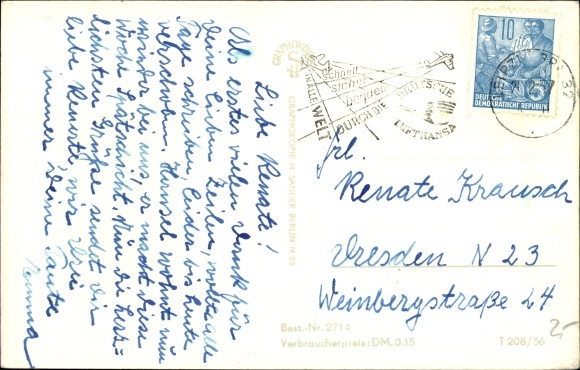 Liebe Renate!
Als erstes vielen Dank für
Deine lieben Zeilen, wollte alle
Tage schreiben, leider bis heute
verschoben. Hansel wohnt nun
wieder bei uns, er macht diese
Woche Spätschicht. Nun die herz-
lichsten Grüße sendet Dir
liebe Renate, wie
immer Deine Tante
GRAPHOKOPIE H. SANDER BERLIN N 54
schnell
sicher
bequem
IN ALLE WELT
DURCH DIE DEUTSCHE
LUFTHANSA
10
DEUTSCHE
DEMOKRATISCHE REPUBLIK
Frl.
Renate Krausch
Dresden N 23
Weinbergstraße 24
Best.-Nr. 2714
Verbraucherpreis: DM. 0.15
T 208/56
2,-